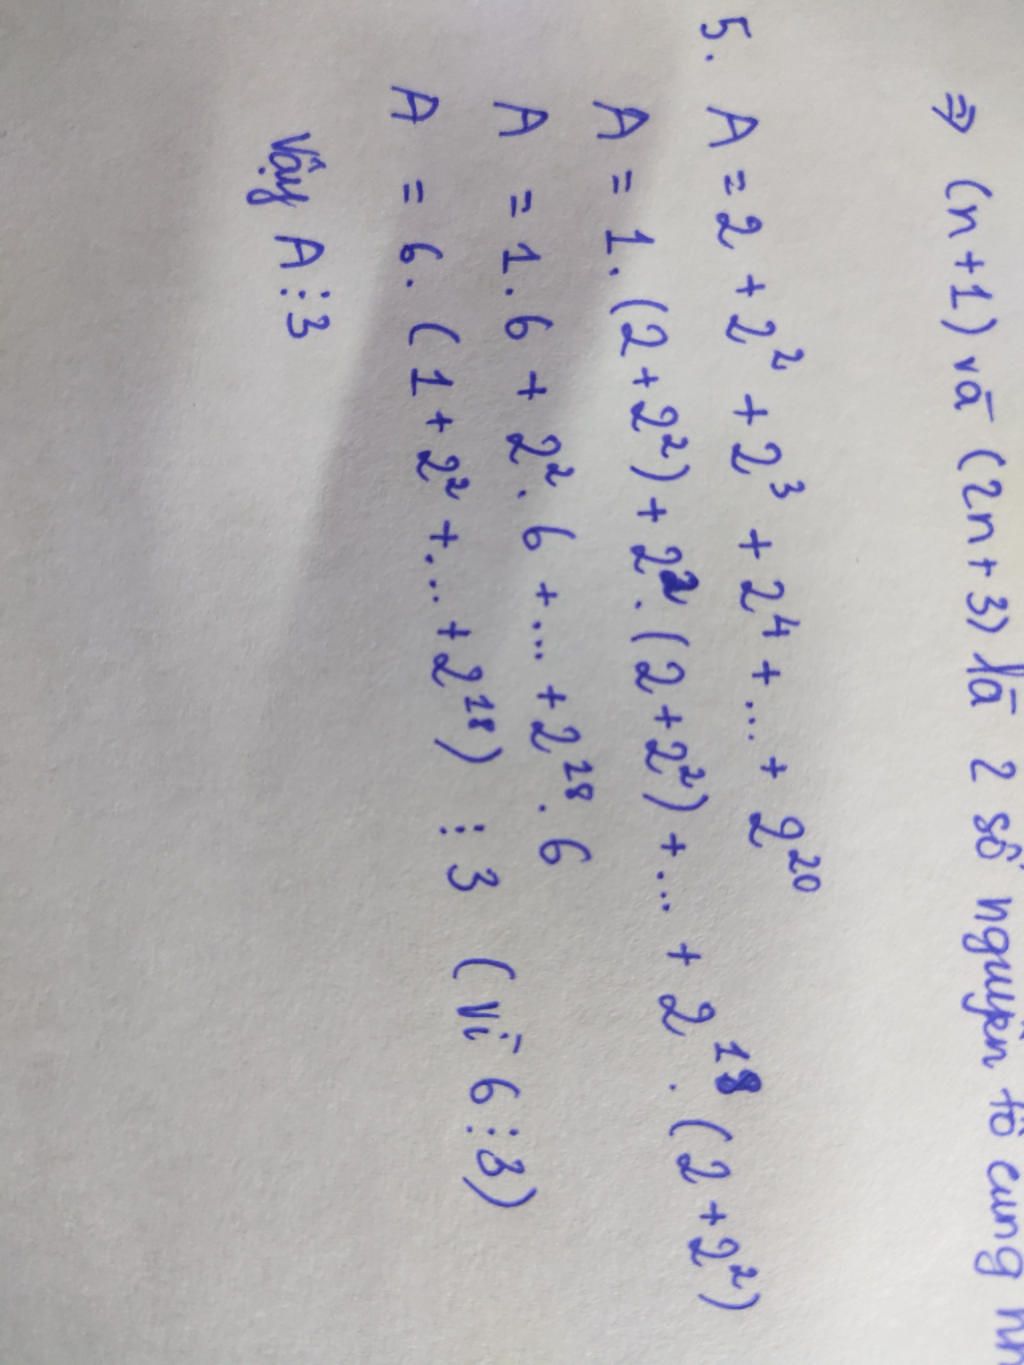 ⇒ (n+1) và (2n+3) là 2 số nguyên tố cùng
5. A = 2 + 2² + 2³ + 2⁴ + ... + 2²⁰
A = 1. (2+2²) + 2². (2+2²) + ... + 2¹⁸. (2+2²)
A = 1.6 + 2².6 + ... + 2¹⁸.6
A = 6. (1+2² + ... + 2¹⁸) ⋮ 3 (vì 6⋮3)
Vậy A⋮3